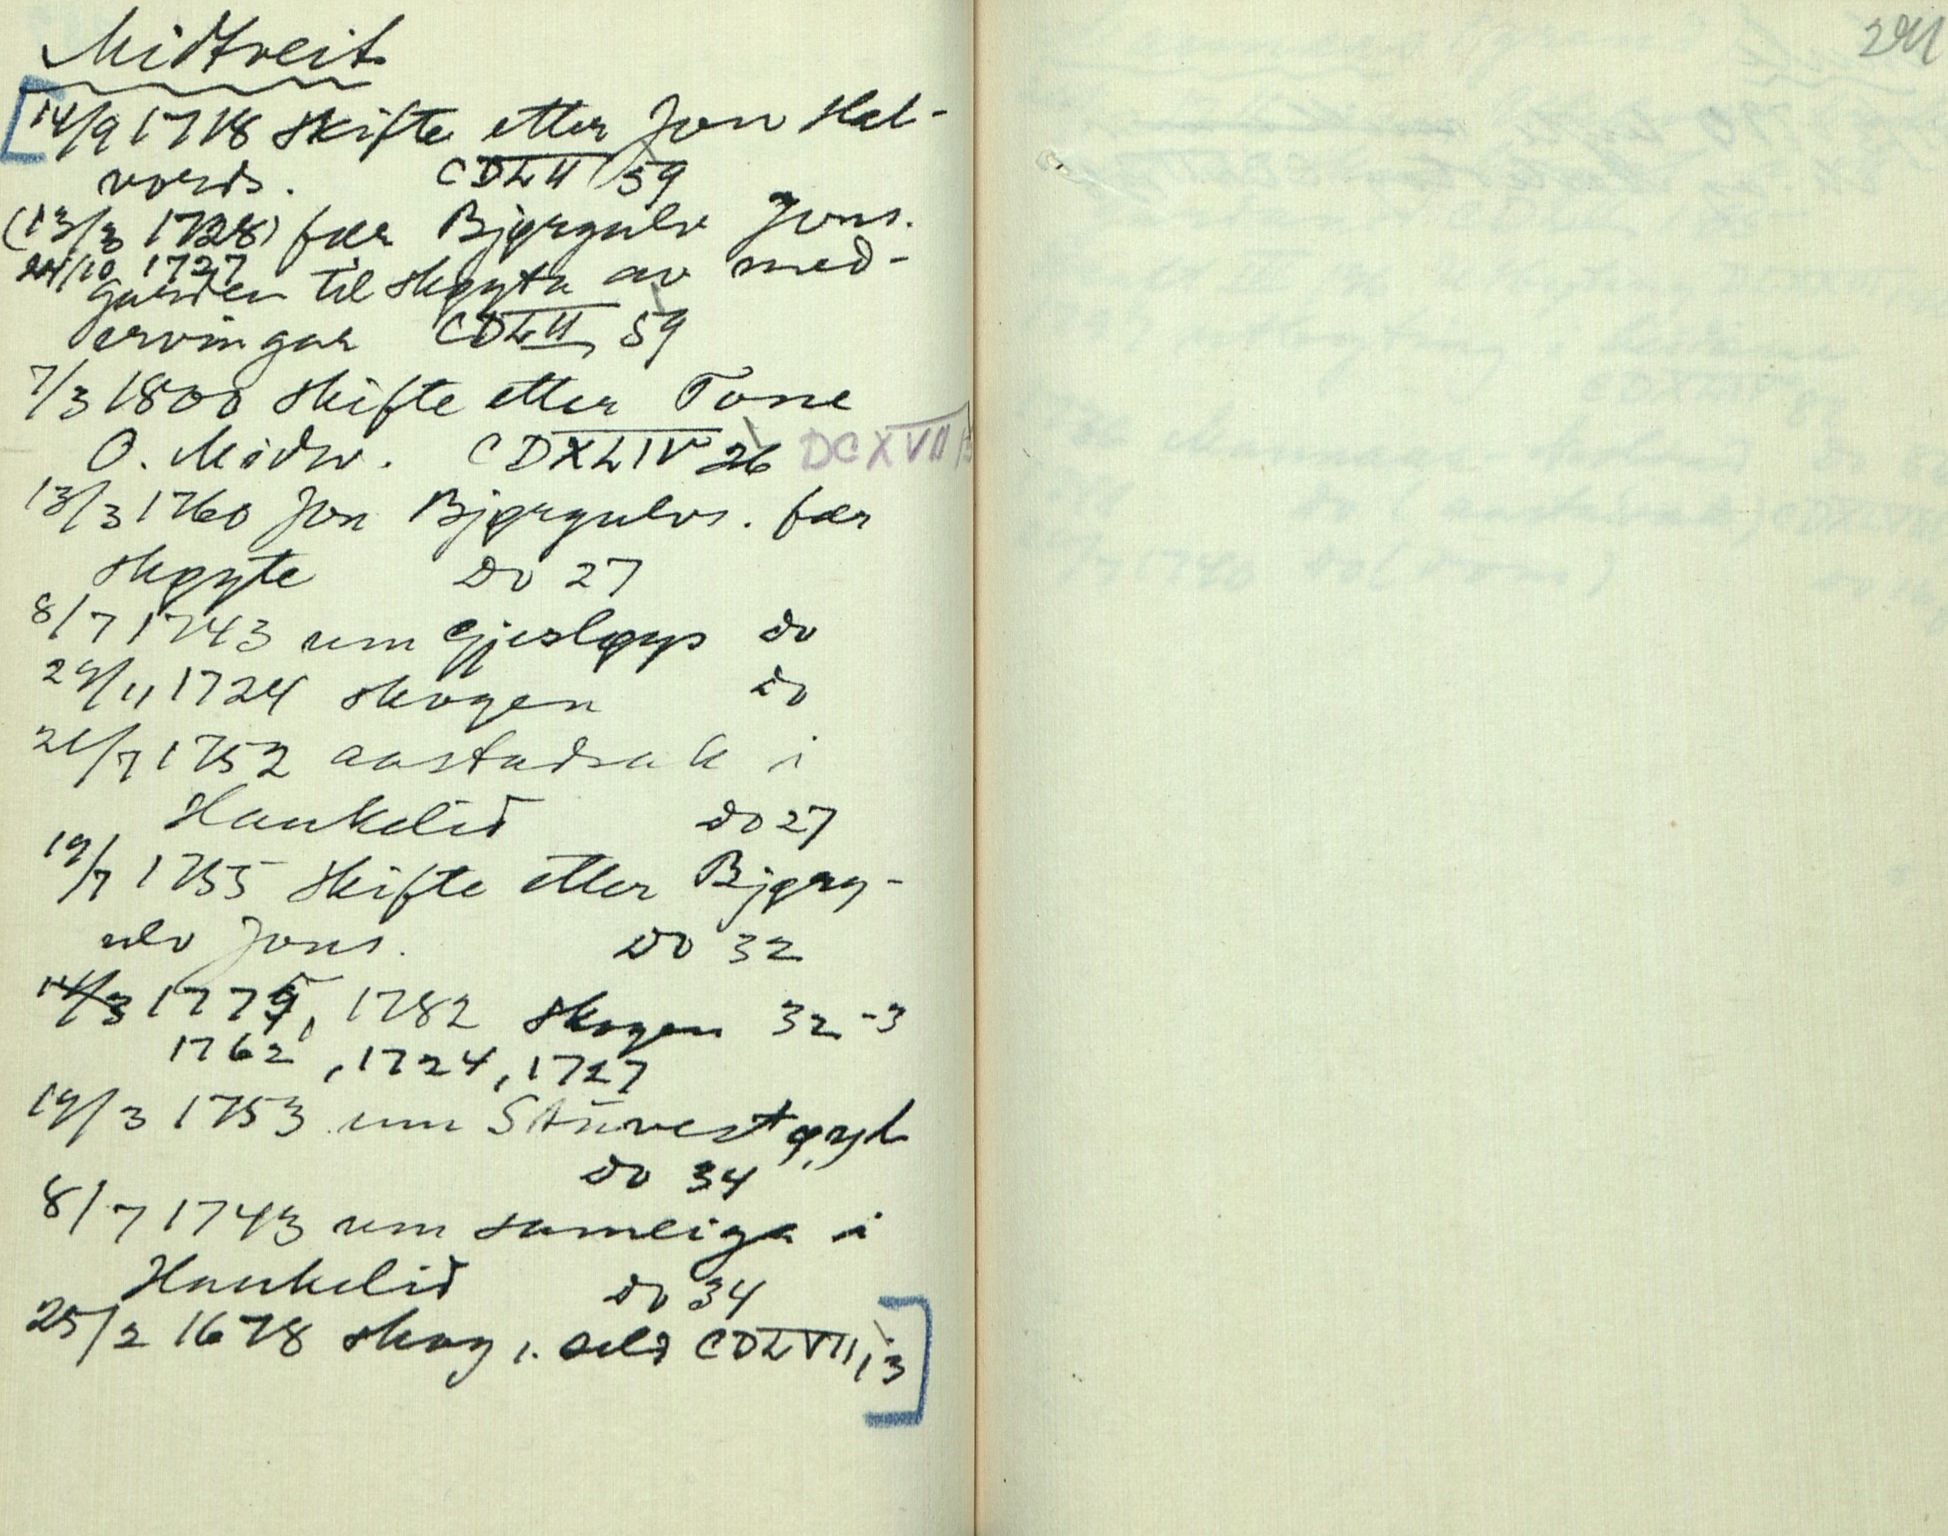 Midtveit
14/9 1718 skifte etter Jon Hal-
vords. CDLII 59
(13/3 1728) fær Bjørgulv Jons.
24/10 1727
garden til skøyta av med-
ervingar CDLII 59
7/3 1800 skifte etter Tone
O. Midtv. CDXLIV 26 DCXVII
13/3 1760 Jon Bjørgulvs. fær
skøyte Do 27
8/7 1743 um Gjesløys do
29/11 1724 skogen do
21/7 1752 aastadsak i
Haukelid do 27
19/7 1755 skifte etter Bjørg-
ulv Jons. Do 32
14/3 1775, 1782 skogen 32-3
1762, 1724, 1727
19/3 1753 um
Do 34
8/7 1743 um sameiga i
Haukelid do 34
25/2 1678 skog, seld CDLVII, 3
241